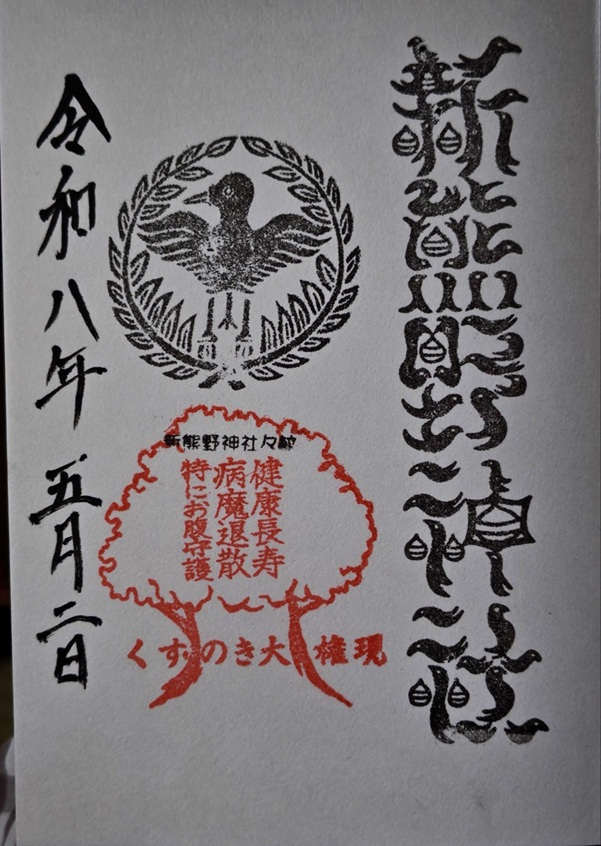 新熊野神社
新熊野神社
健康長寿
病魔退散
特にお腹守護
くすのき大権現
令和八年五月二日